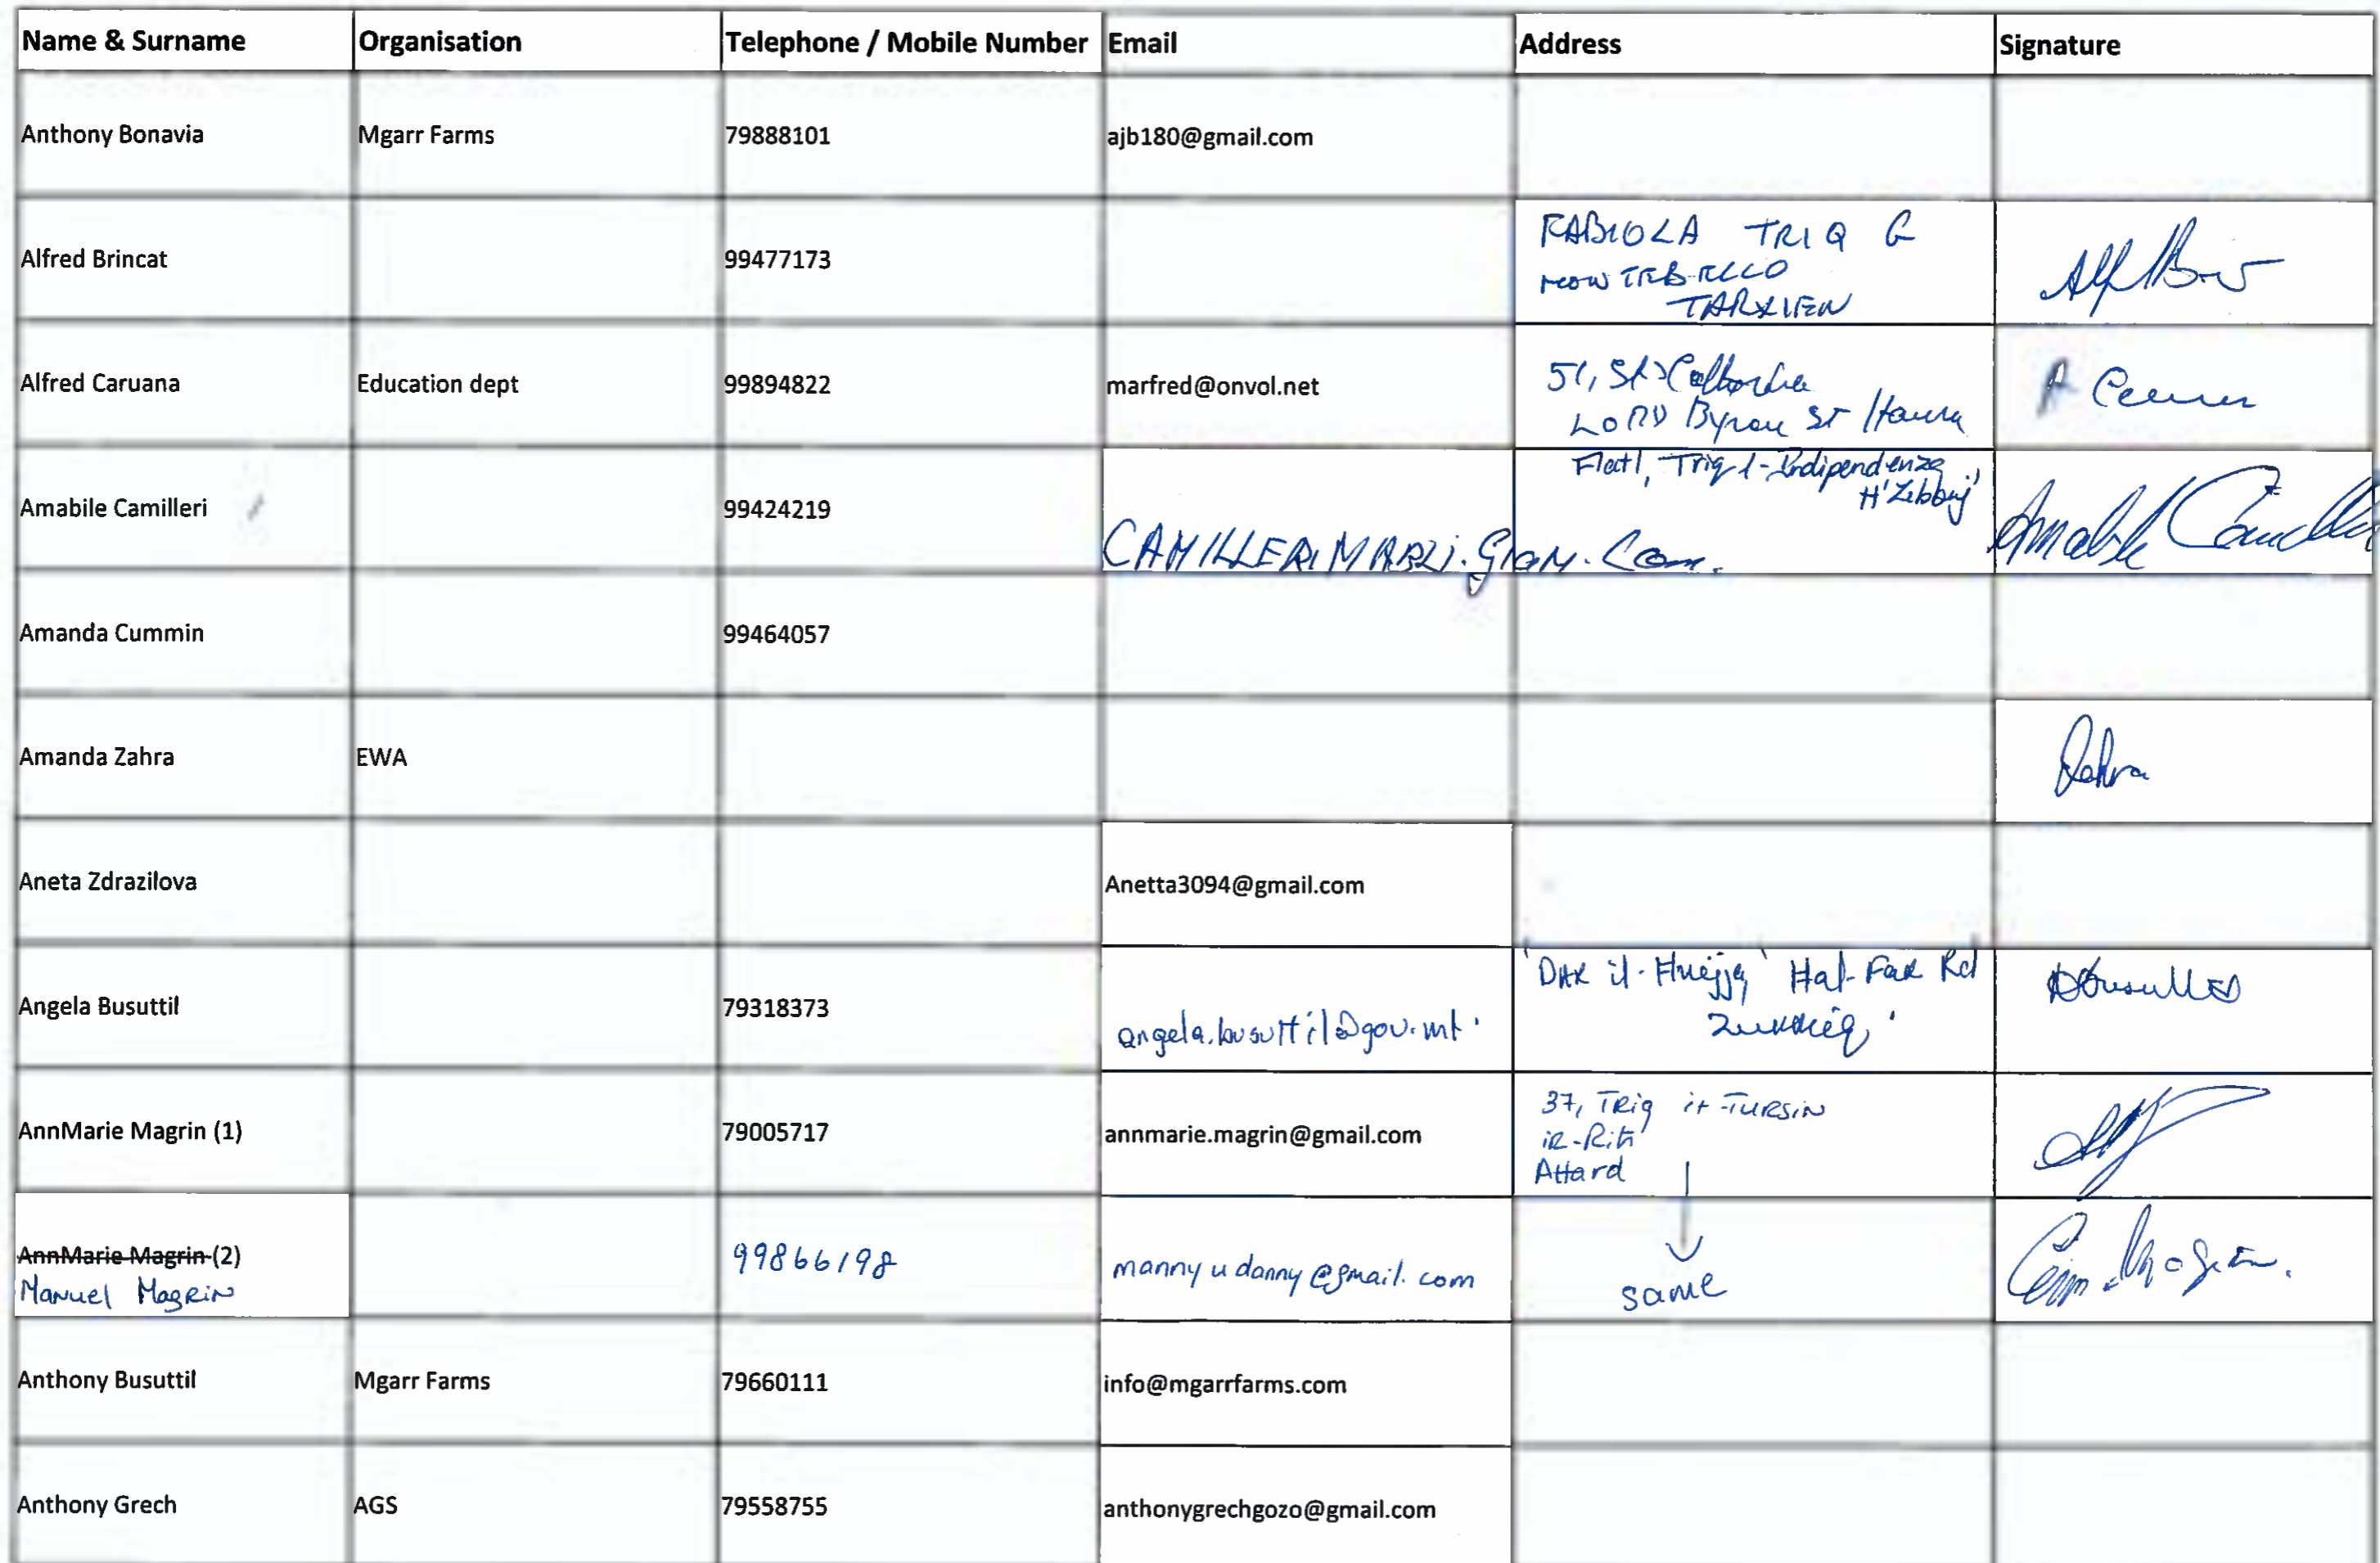 Name & Surname Organisation Telephone / Mobile Number Email Address Signature
Anthony Bonavia Mgarr Farms 79888101 ajb180@gmail.com
Alfred Brincat 99477173 FABIOLA TRIQ G
TARXIEN
Alfred Caruana Education dept 99894822 marfred@onvol.net 51,
LORD Byron St
Amabile Camilleri 99424219 Flat1, Triq l-Indipendenza,
H'Zebbuj
Amabile
Amanda Cummin 99464057
Amanda Zahra EWA Zahra
Aneta Zdrazilova Anetta3094@gmail.com
Angela Busuttil 79318373 angela.busuttil@gov.mt Hal-Far Rd
AnnMarie Magrin (1) 79005717 annmarie.magrin@gmail.com 37, Triq it-Tursin
Attard
AnnMarie Magrin (2) 99866198 mannyudanny@gmail.com same
Manuel Magrin
Anthony Busuttil Mgarr Farms 79660111 info@mgarrfarms.com
Anthony Grech AGS 79558755 anthonygrechgozo@gmail.com